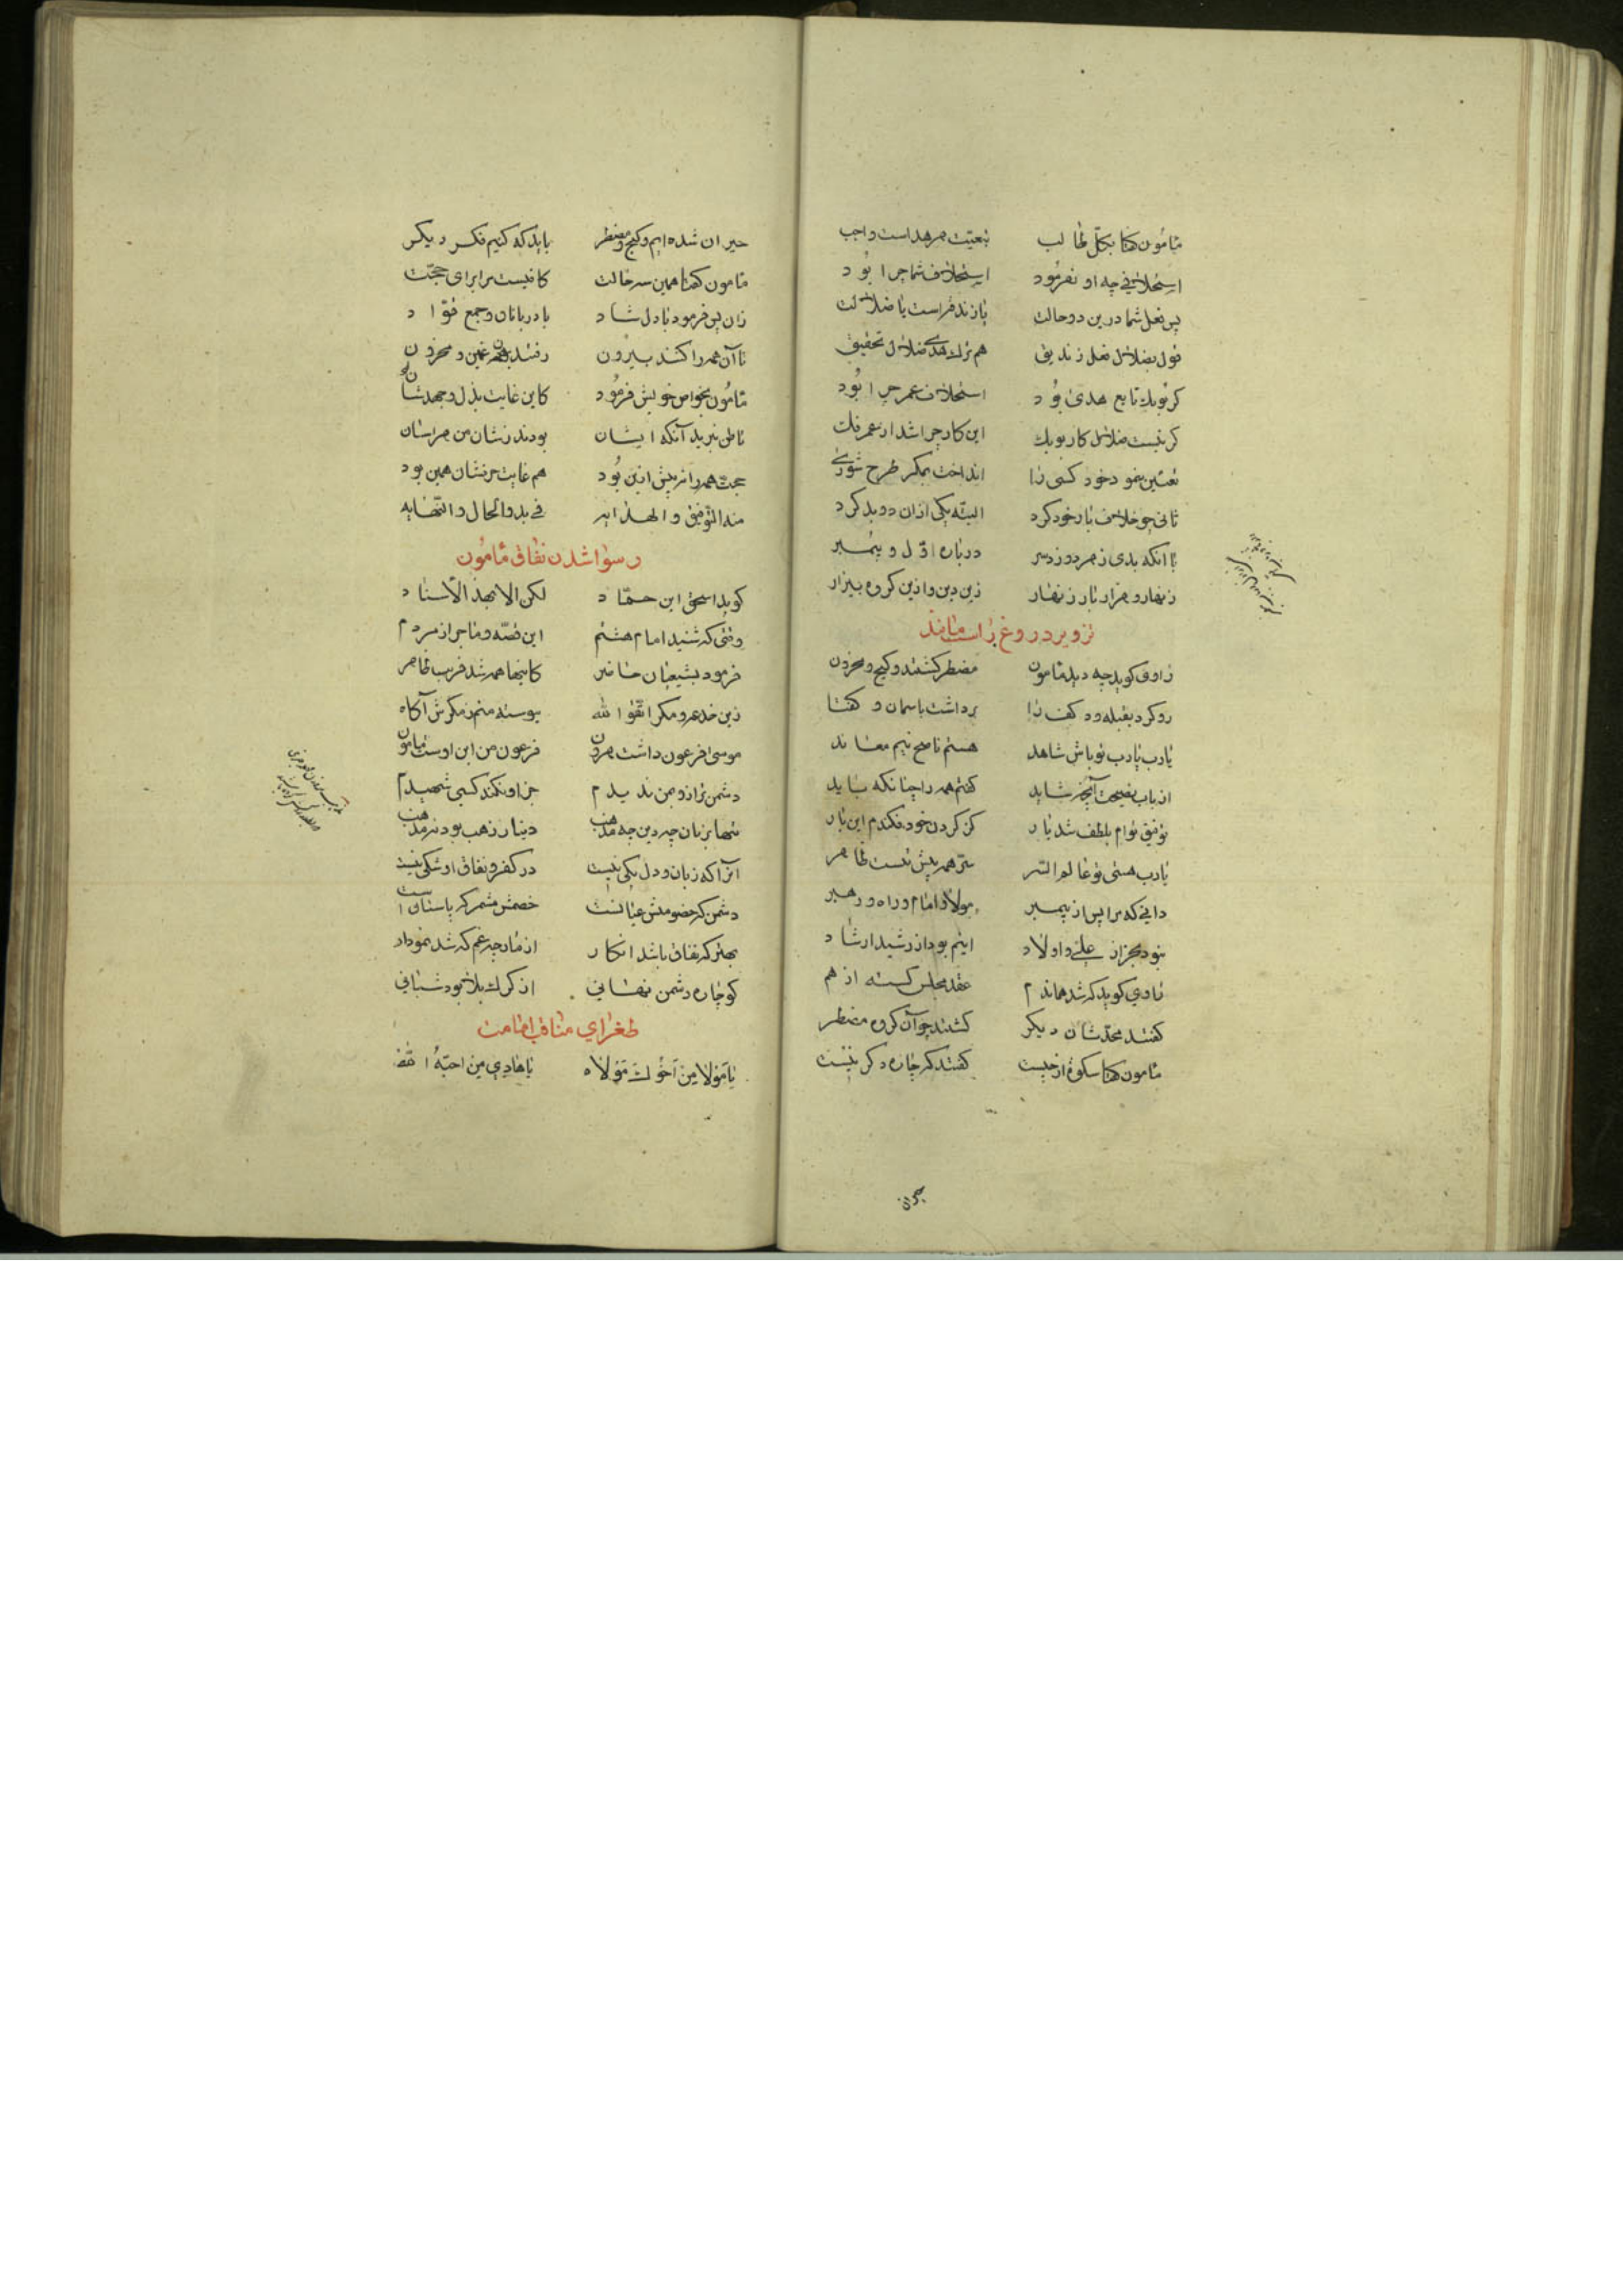 مامون گفتا بکل طالب تبعیت هر هداست واجب
استخلافی چه او نفرمود استخلاف شما چرا بود
پس فعل شما درین دو حالت یا زندقه است یا ضلالت
قول بضلال فعل زندیق هم ترک هدی ضلال تحقیق
گر بوبک تابع هدی بود استخلاف عمر چرا بود
گر نیست ضلال کار بوبک این کار چرا شد از عمر فک
تعیین ننمود خود کسی را انداخت بمکر طرح شوری
ثانی چو خلاف یار خود کرد البته یکی ازان دو بد کرد
با آنکه بدی ز هر دو زد سر درباره اول و پیمبر
زنهار و هزار بار زنهار زین دین و ازین گروه بیزار
تزویر دروغ راست مانند
راوی گوید چه دید مامون مضطر گشتند و گیج و محزون
رو کرد بقبله و دو کف را برداشت باسمان و گفتا
یارب یارب تو باش شاهد هستم ناصح نیم معاند
از باب نصیحت آنچه شاید گفتم همه را چنانکه باید
توفیق توام بلطف شد یار کز گردن خود فکندم این بار
یارب هستی تو عالم السر سر همه پیش تست ظاهر
دانی که مرا پس از پیمبر مولا و امام و راه و رهبر
نبود بجز از علی و اولاد اینم بود از رشید ارشاد
راوی گوید که شد هماندم عقد مجلس گسسته از هم
گفتند محدثشان دیگر گشتند چو آن گروه مضطر
مامون گفتا سکوت از چیست گفتند که چاره دگر نیست
حیران
حیران شده ایم و گیج و مضطر باید که کنیم فکر دیگر
مامون گفتا همین سه حالت کافیست مرا برای حجت
زان پس فرمود با دل شاد با دربانان و جمع قواد
تا آن همه را کنند بیرون رفتند همه غمین و محزون
مامون بخواص خویش فرمود کاین غایت بذل و جهدشان بود
تا ظن نبرید آنکه ایشان بودند ز شان من هراسان
حجت همه را نه بیش ازین بود هم غایت حرفشان همین بود
منه التوفیق و الهدایه فی بدو الحال و النهایه
رسوا شدن نفاق مامون
گوید اسحق ابن حماد لکن الا بهذا الاسناد
وقتی که شنید امام هشتم این قصه و ماجرا ز مردم
فرمود بشیعیان حاضر کاینها همه شد فریب ظاهر
زین خدعه و مکر اتقوا الله پیوسته منم ز مکرش آگاه
موسی فرعون داشت هرون فرعون من ابن اوست مامون
دشمن تر ازو بمن ندیدم جز او نکند کسی شهیدم
تنها بزبان چه دین چه مذهب دینار ذهب بود نه مذهب
آنرا که زبان و دل یکی نیست در کفر و نفاق او شکی نیست
دشمن که خصومتش عیانست خصمش مشمر که پاسبانست
بهتر که نفاق باشد انکار از مار چه غم که شد نمودار
کو چاره دشمن نهانی از گرگ بلا بود شبانی
طغرای مناقب امامت
یا مولا من اخوک مولاه یا هادی من احبه الله